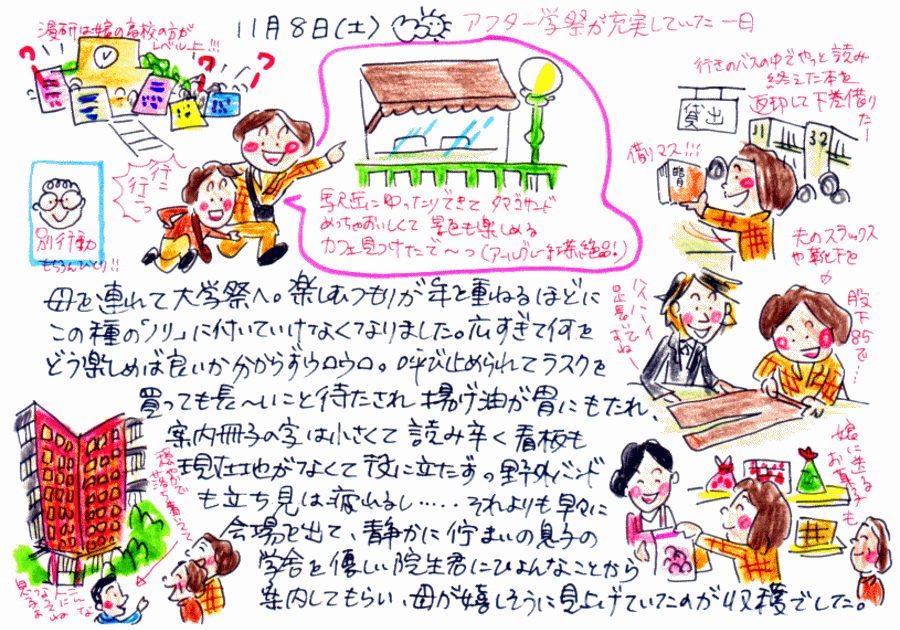 11月8日(土)
アフター学祭が充実していた一日
漫研は娘の高校の方が
レベル上!!!
行こ
行こっ
別行動
もちろんひとり!!
駅近にゆったりできて タマゴサンド
めちゃおいしくて 景色も楽しめる
カフェ見つけたで〜っ(アールグレー紅茶絶品!)
行きのバスの中でやっと読み
終えた本を
返却して下巻借りたー
貸出
借りマス!!!
夫のスラックス
や靴下を
股下85で…
ハイハーイ
足長いですねー
母を連れて大学祭へ。楽しむつもりが年を重ねるほどに
この種の「ノリ」に付いていけなくなりました。広すぎて何を
どう楽しめば良いか分からずウロウロ。呼び止められてラスクを
買っても長〜いこと待たされ揚げ油が胃にもたれ、
案内冊子の字は小さくて読み辛く看板も
現在地がなくて役に立たず。野外バンド
も立ち見は疲れるし…‥それよりも早々に
会場を出て、静かに佇まいの息子の
学舎を優しい院生君にひょんなことから
案内してもらい、母が嬉しそうに見上げていたのが収穫でした。
穏やかで
落ち着いてて
娘に送る
お菓子も